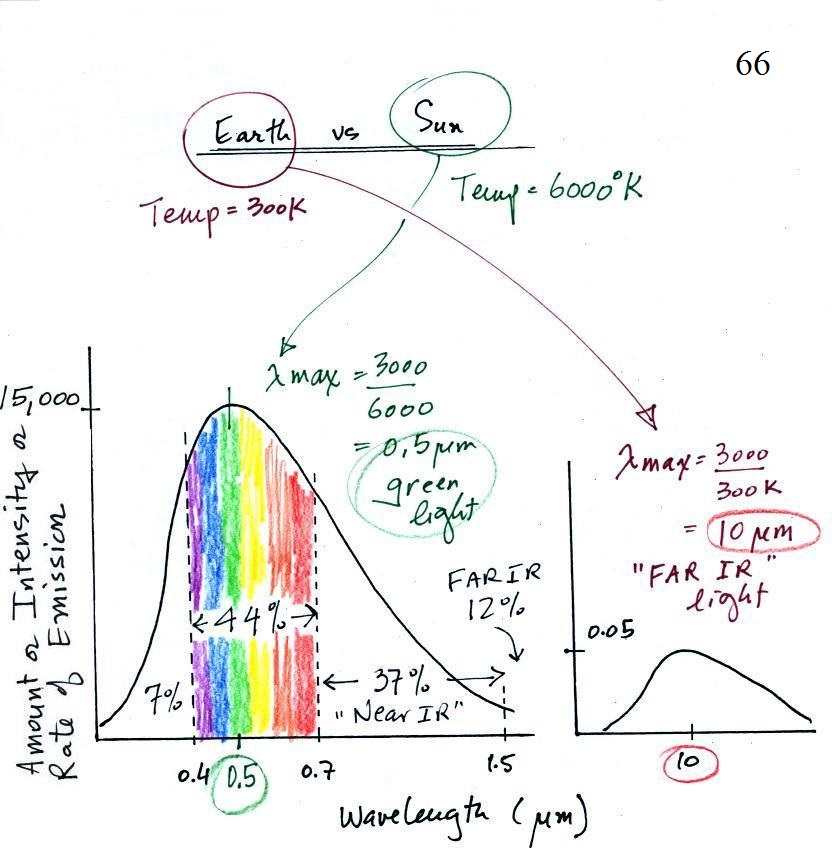 66
Earth vs Sun
Temp = 300K
Temp = 6000°K
λmax = 3000
6000
= 0.5 μm
green
light
λmax = 3000
300K
= 10 μm
"FAR IR"
light
15,000
Amount or Intensity or
Rate of Emission
7%
← 44% →
← 37% →
"Near IR"
FAR IR
12%
0.4
0.5
0.7
1.5
Wavelength (μm)
0.05
10